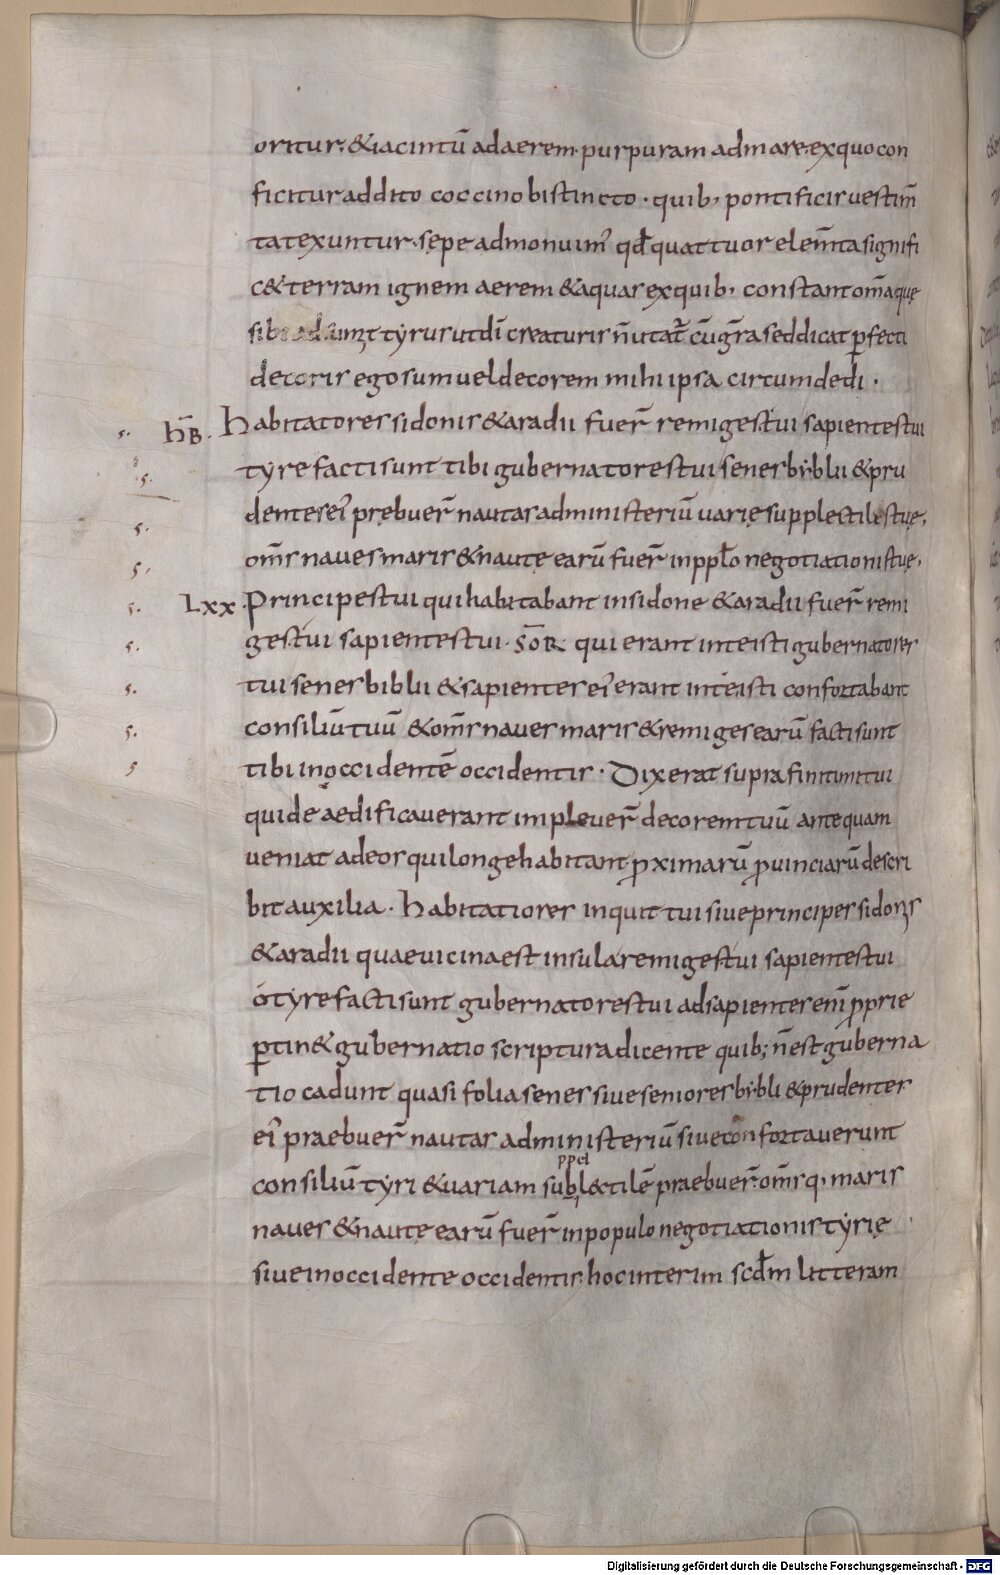 oritur, & iacintū ad aerem purpuram ad mare, ex quo con
ficitur addito coccino bis tincto · quib, pontificis uestim̄
ta texuntur · sępe admonuim' qđ quattuor elem̄ta signifi
c& terram ignem aerem & aquas ex quib, constant om̄aquę
sibi tyrus ut dī creaturis n̄ utat̄ cū gr̄a sed dicat ꝑfecti
decoris ego sum uel decorem mihi ipsa circumdedi ·
s. hB̄. Habitatores sidonis & aradii fuer̄ remiges tui sapientes tui
s. tyre facti sunt tibi gubernatores tui senes bẏblii & pru
s. dentes eī prębuer̄ nautas administeriū uarię supplectilis tuę,
s, om̄s naues maris & nautę earū fuer̄ in pplo negotiationis tuę,
s. Lxx · Principes tui qui habitabant in sidone & aradii fuer̄ remi
s. ges tui sapientes tui · SōR qui erant in te isti gubernatores
s. tui senes biblii & sapientes eī erant in te isti confortabant
s. consiliū tuū & om̄s naues maris & remiges earū facti sunt
s tibi in occidentē occidentis · Dixerat supra finitimi tui
qui de aedificauerant impleuer̄ decorem tuū antequam
ueniat ad eos qui longe habitant ꝓximarū ꝓuinciarū descri
bit auxilia · Habitatiores inquit tui siue principes sidonis
& aradii quae uicina est insula remiges tui sapientes tui
ó tyre facti sunt gubernatores tui ad sapientes enī ꝓprie
ꝑtin& gubernatio scriptura dicente quib; n̄ est guberna
tio cadunt quasi folia senes siue seniores bẏbli & prudentes
eī praebuer̄ nautas administeriū siue confortauerunt
ppel
consiliū tyri & uariam subl&tilē praebuer̄ om̄s q, maris
naues & nautę earū fuer̄ in populo negotiationis tyrię
siue in occidente occidentis, hoc interim scđm litteram
Digitalisierung gefördert durch die Deutsche Forschungsgemeinschaft - DFG